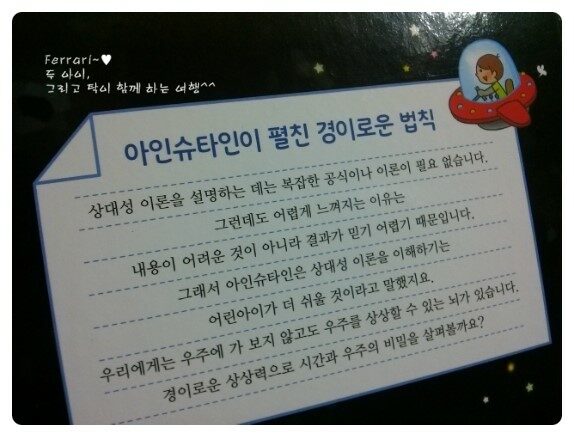 Ferrari~♥
두 아이,
그리고 탁이 함께 하는 여행^^
아인슈타인이 펼친 경이로운 법칙
상대성 이론을 설명하는 데는 복잡한 공식이나 이론이 필요 없습니다.
그런데도 어렵게 느껴지는 이유는
내용이 어려운 것이 아니라 결과가 믿기 어렵기 때문입니다.
그래서 아인슈타인은 상대성 이론을 이해하기는
어린아이가 더 쉬울 것이라고 말했지요.
우리에게는 우주에 가 보지 않고도 우주를 상상할 수 있는 뇌가 있습니다.
경이로운 상상력으로 시간과 우주의 비밀을 살펴볼까요?